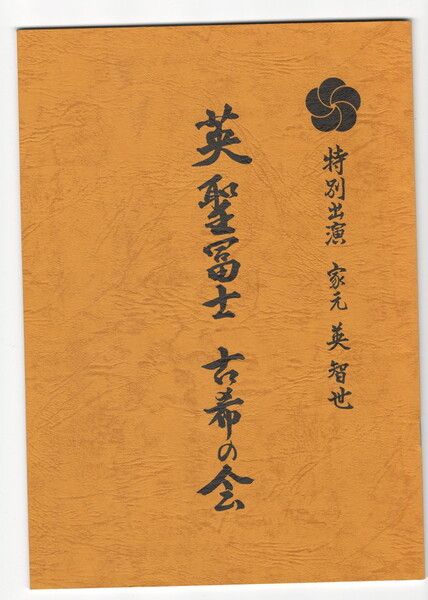 特別出演 家元 英智世
英聖冨士 古希の会